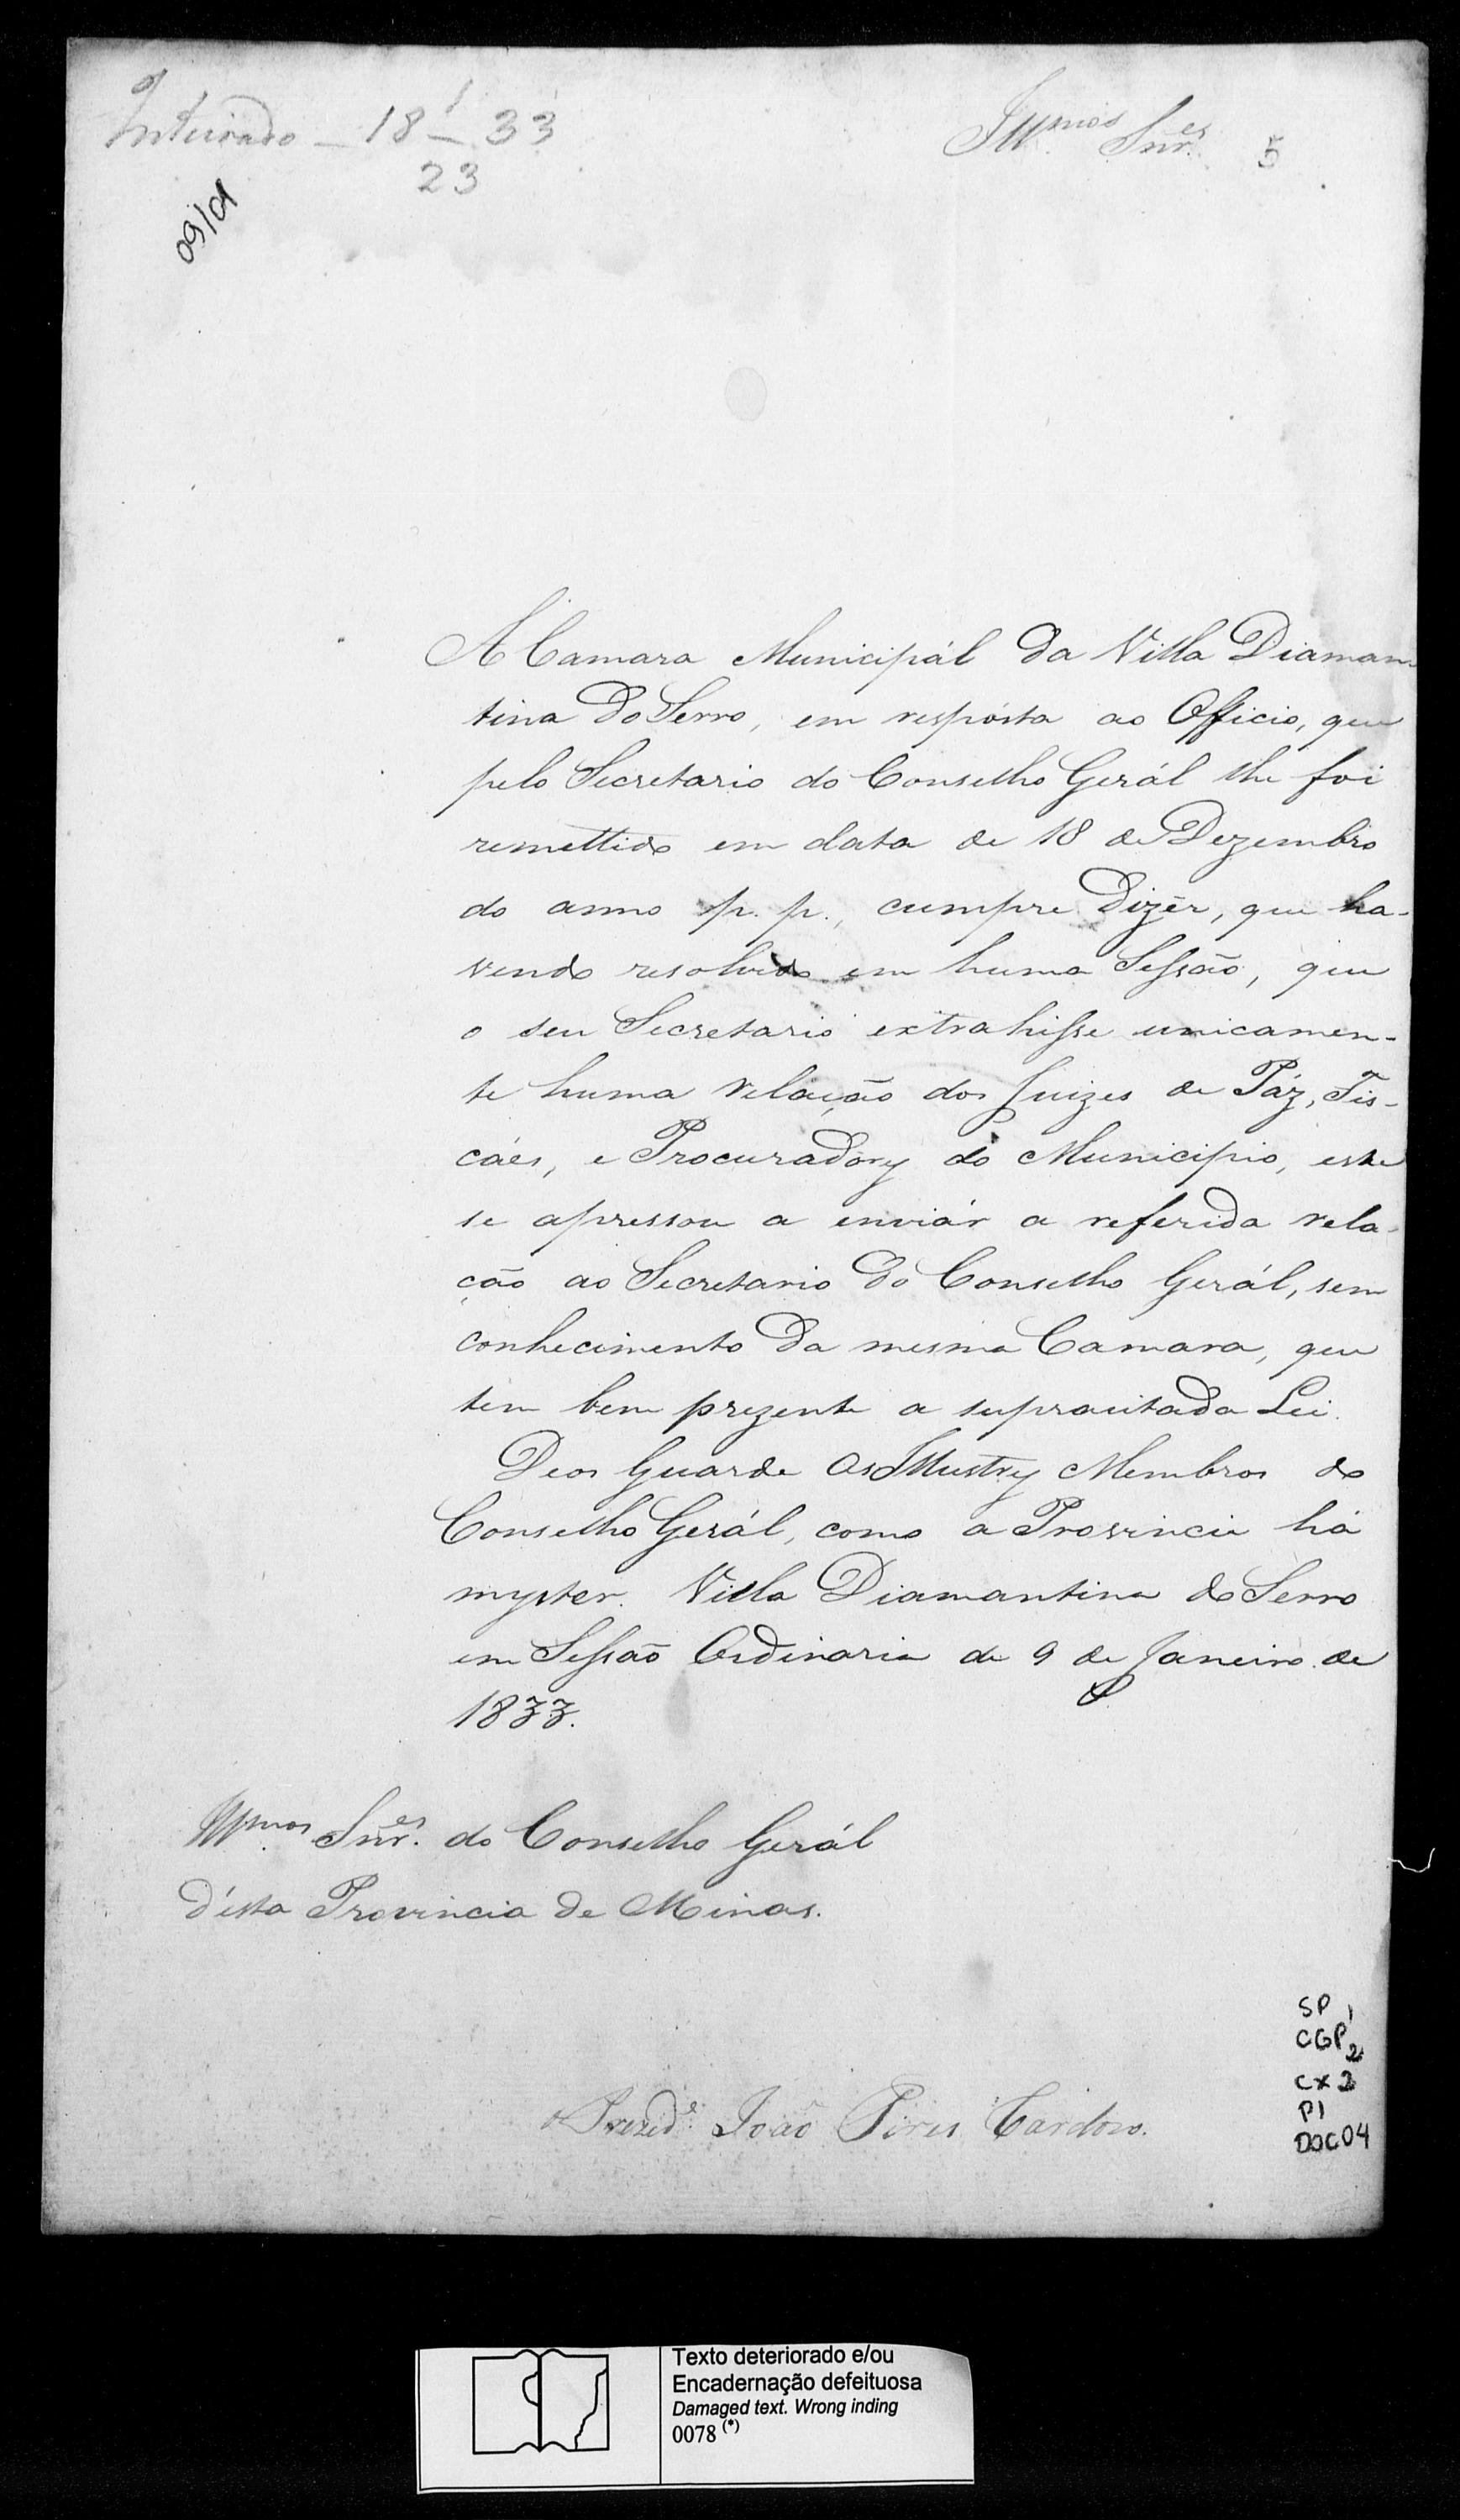 Inteirado — 18 1/23 33
Illmos Snres. 5
09/01
A Camara Municipál da Villa Diaman
tina do Serro, em respósta ao Officio, que
pelo Secretario do Conselho Gerál lhe foi
remettido em data de 18 de Dezembro
do anno p. p., cumpre dizêr, que ha-
vendo resolvido em huma Sessão, que
o seu Secretario extrahisse unicamen-
te huma relação dos Juizes de Páz, Fis-
cáes, e Procuradores do Municipio, este
se apressou a enviár a referida rela-
ção ao Secretario do Conselho Gerál, sem
conhecimento da mesma Camara, que
tem bem prezente a supracitada Lei.
Deos Guarde as Illustres Membros do
Conselho Gerál, como a Provincia há
myster. Villa Diamantina do Serro
em Sessão Ordinaria de 9 de Janeiro de
1833.
Illmos Snres. do Conselho Gerál
d'ésta Provincia de Minas.
o Prezide. João Pires Cardozo.
SP 1
CGP 2
CX 2
P1
DOC 04
Texto deteriorado e/ou
Encadernação defeituosa
Damaged text. Wrong inding
0078 (*)